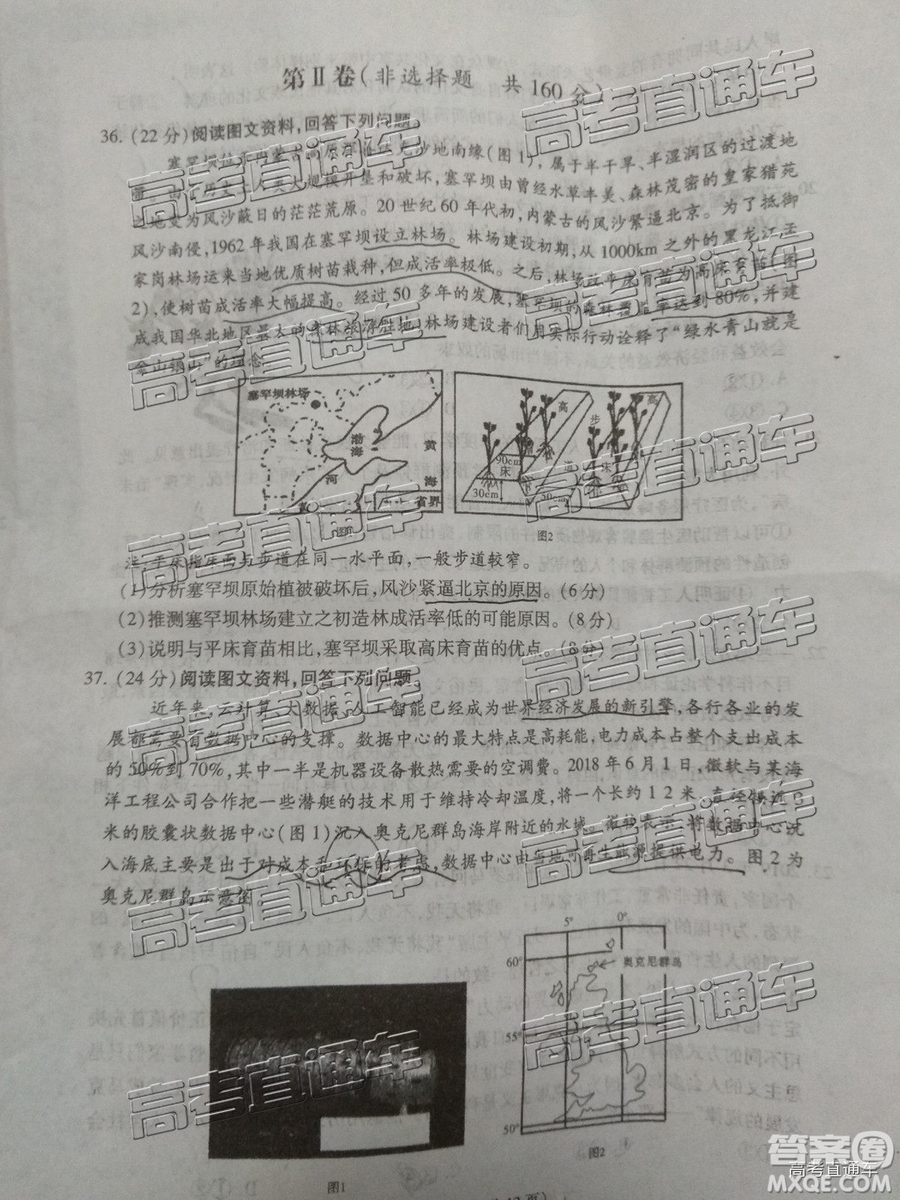 第Ⅱ卷(非选择题 共160分)
36.(22分)阅读图文资料,回答下列问题。
塞罕坝位于内蒙古高原浑善达克沙地南缘(图1),属于半干旱、半湿润区的过渡地
带。由于历史上人类大规模开垦和破坏,塞罕坝由曾经水草丰美、森林茂密的皇家猎苑
之地变为风沙蔽日的茫茫荒原。20世纪60年代初,内蒙古的风沙紧逼北京。为了抵御
风沙南侵,1962年我国在塞罕坝设立林场。林场建设初期,从1000km之外的黑龙江王
家岗林场运来当地优质树苗栽种,但成活率极低。之后,林场改平床育苗为高床育苗(图
2),使树苗成活率大幅提高。经过50多年的发展,塞罕坝的森林覆盖率达到80%,并建
成我国华北地区最大的森林旅游胜地。林场建设者们用实际行动诠释了“绿水青山就是
金山银山”的理念。
塞罕坝林场
渤
海
黄
海
黄
河
省界
图1
高
高
步
90cm
床
床
30cm
30cm
图2
注:平床指床面与步道在同一水平面,一般步道较窄。
(1)分析塞罕坝原始植被破坏后,风沙紧逼北京的原因。(6分)
(2)推测塞罕坝林场建立之初造林成活率低的可能原因。(8分)
(3)说明与平床育苗相比,塞罕坝采取高床育苗的优点。(8分)
37.(24分)阅读图文资料,回答下列问题。
近年来,云计算、大数据、人工智能已经成为世界经济发展的新引擎,各行各业的发
展都需要有数据中心的支撑。数据中心的最大特点是高耗能,电力成本占整个支出成本
的50%到70%,其中一半是机器设备散热需要的空调费。2018年6月1日,微软与某海
洋工程公司合作把一些潜艇的技术用于维持冷却温度,将一个长约12米、直径接近3
米的胶囊状数据中心(图1)沉入奥克尼群岛海岸附近的水域。微软表示,将数据中心沉
入海底主要是出于对成本和环保的考虑,数据中心由当地可再生能源提供电力。图2为
奥克尼群岛示意图。
5° 0°
60°
奥克尼群岛
55°
55°
50°
图1
图2
高考直通车
高考直通车
高考直通车
高考直通车
高考直通车
高考直通车
高考直通车
高考直通车
高考直通车
高考直通车
高考直通车
高考直通车
答案圈
高考直通车
MXQE.COM